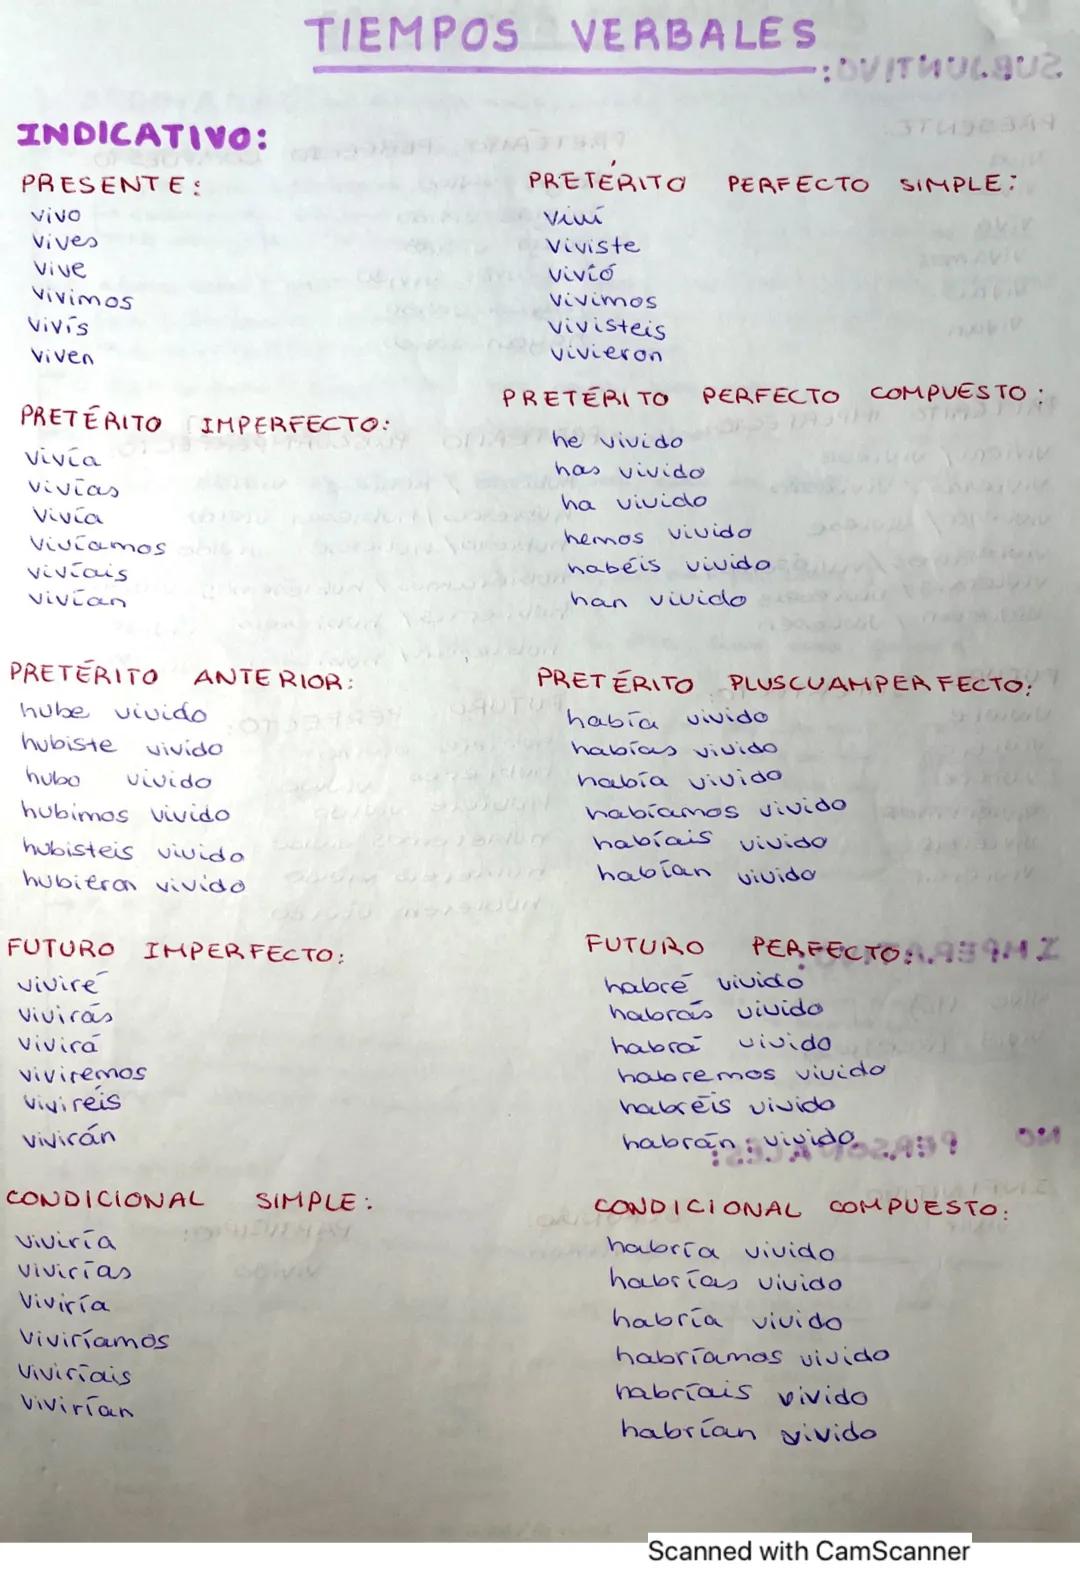 TIEMPOS VERBALES
INDICATIVO:
PRESENTE:
vivo
vives
vive
vivimos
vivís
viven
PRETÉRITO PERFECTO SIMPLE:
viví
viviste
vivió
vivimos
vivisteis
vivieron
PRETÉRITO IMPERFECTO:
vivía
vivías
vivía
vivíamos
vivíais
vivían
PRETÉRITO PERFECTO COMPUESTO:
he vivido
has vivido
ha vivido
hemos vivido
habéis vivido
han vivido
PRETÉRITO ANTERIOR:
hube vivido
hubiste vivido
hubo vivido
hubimos vivido
hubisteis vivido
hubieron vivido
PRETÉRITO PLUSCUAMPERFECTO:
había vivido
habías vivido
había vivido
habíamos vivido
habíais vivido
habían vivido
FUTURO IMPERFECTO:
viviré
vivirás
vivirá
viviremos
viviréis
vivirán
FUTURO PERFECTO:
habré vivido
habrás vivido
habrá vivido
habremos vivido
habréis vivido
habrán vivido
CONDICIONAL SIMPLE:
viviría
vivirías
viviría
viviríamos
viviríais
vivirían
CONDICIONAL COMPUESTO:
habría vivido
habrías vivido
habría vivido
habríamos vivido
habríais vivido
habrían vivido
Scanned with CamScanner